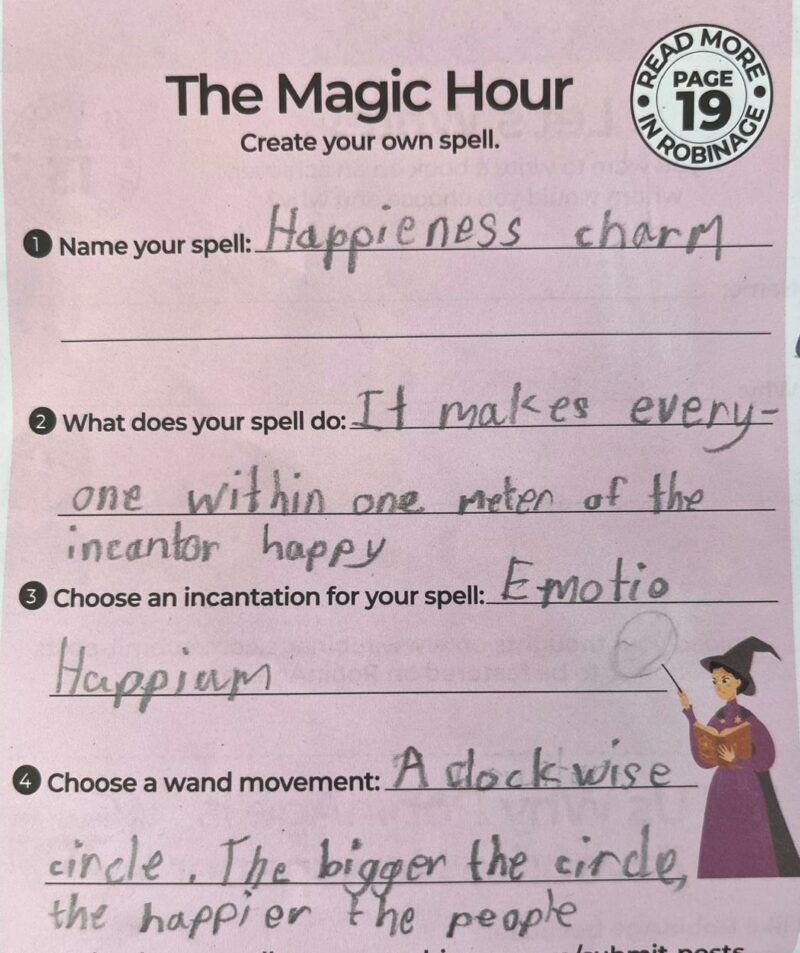 The Magic Hour
Create your own spell.
READ MORE
PAGE
19
IN ROBINAGE
1 Name your spell: Happieness charm
2 What does your spell do: It makes every-
one within one meter of the
incantor happy
3 Choose an incantation for your spell: Emotio
Happium
4 Choose a wand movement: A clockwise
circle. The bigger the circle,
the happier the people